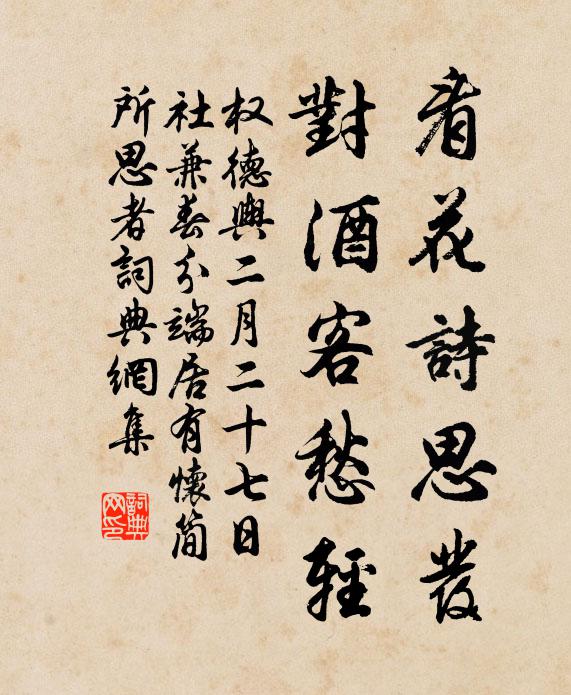 看花詩思發
對酒客愁輕
权德輿二月二十七日
社兼春分端居有懷简
所思者詞典網集
詞典网印